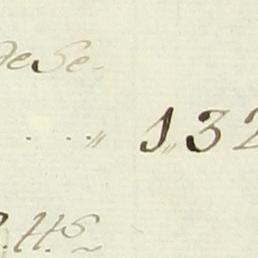 de Se-
. . . „ 1„32
H.S